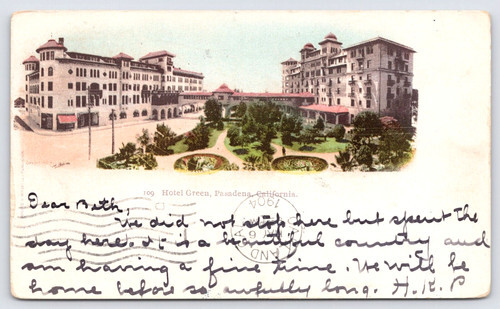 109 Hotel Green, Pasadena, California.
Dear Beth,
We did not stop here but spent the
day here. It is a beautiful country and
am having a fine time. We will be
home before so awfully long. H.K.P
1904
AND